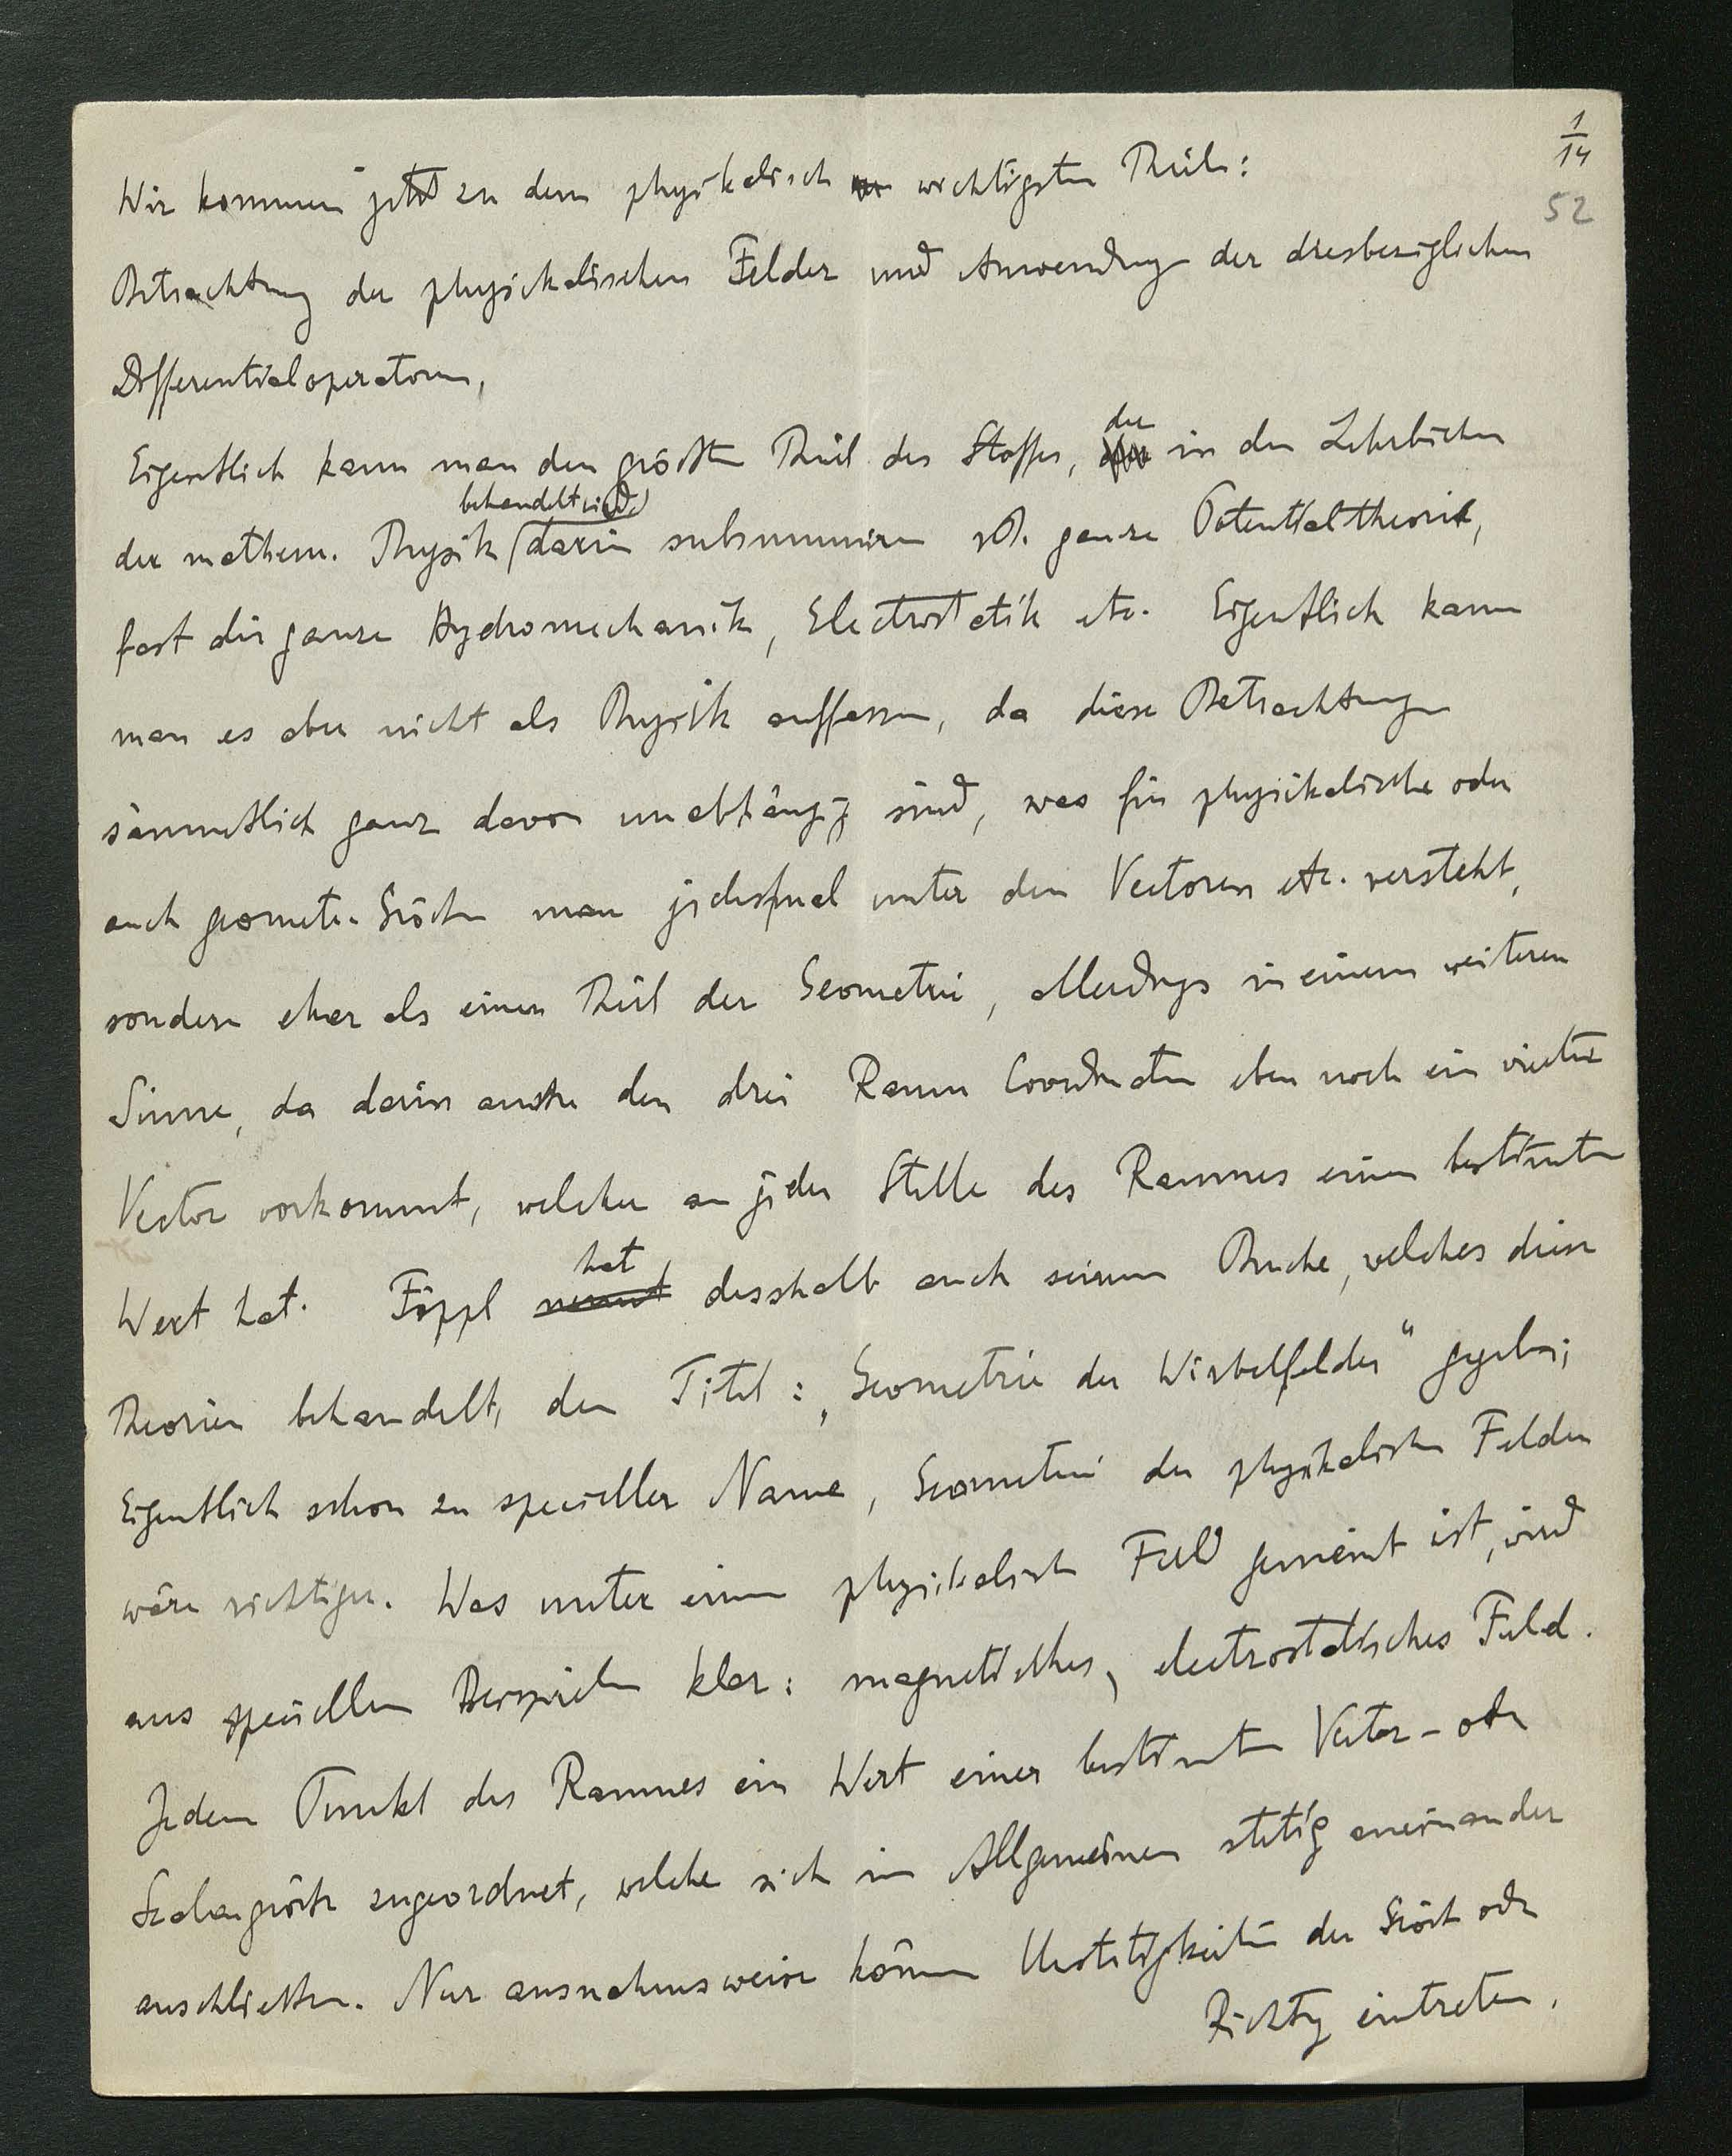 1/14
52
Wir kommen jetzt zu dem physikalisch wichtigsten Theile:
Betrachtung der physikalischen Felder und Anwendung der diesbezüglichen
Differentialoperatoren,
Eigentlich kann man den größten Theil des Stoffes, der in den Lehrbüchern
der mathem. Physik (behandelt wird) darin subsummiren, ganze Potentialtheorie,
fast die ganze Hydromechanik, Electrostatik etc. Eigentlich kann
man es aber nicht als Physik auffassen, da diese Betrachtungen
sämmtlich ganz davon unabhängig sind, was für physikalische oder
auch geometr. Größen man jedesmal unter den Vectoren etc. versteht,
sondern eher als einen Theil der Geometrie, allerdings in einem weiteren
Sinne, da darin außer den drei Raum Coordinaten eben noch ein vierter
Vector vorkommt, welcher an jeder Stelle des Raumes einen bestimmten
Wert hat. Föppl hat desshalb auch seinem Buche, welches diese
Theorien behandelt, den Titel: „Geometrie der Wirbelfelder“ gegeben;
Eigentlich schon zu specieller Name, Geometrie der physikalischen Felder
wäre richtiger. Was unter einem physikalischen Feld gemeint ist, wird
aus speciellen Beispielen klar: magnetisches, electrostatisches Feld.
Jedem Punkt des Raumes ein Wert einer bestimmten Vector- oder
Scalargröße zugeordnet, welche sich im Allgemeinen stetig aneinander
anschließen. Nur ausnahmsweise können Unstetigkeiten der Größe oder
Richtung eintreten.